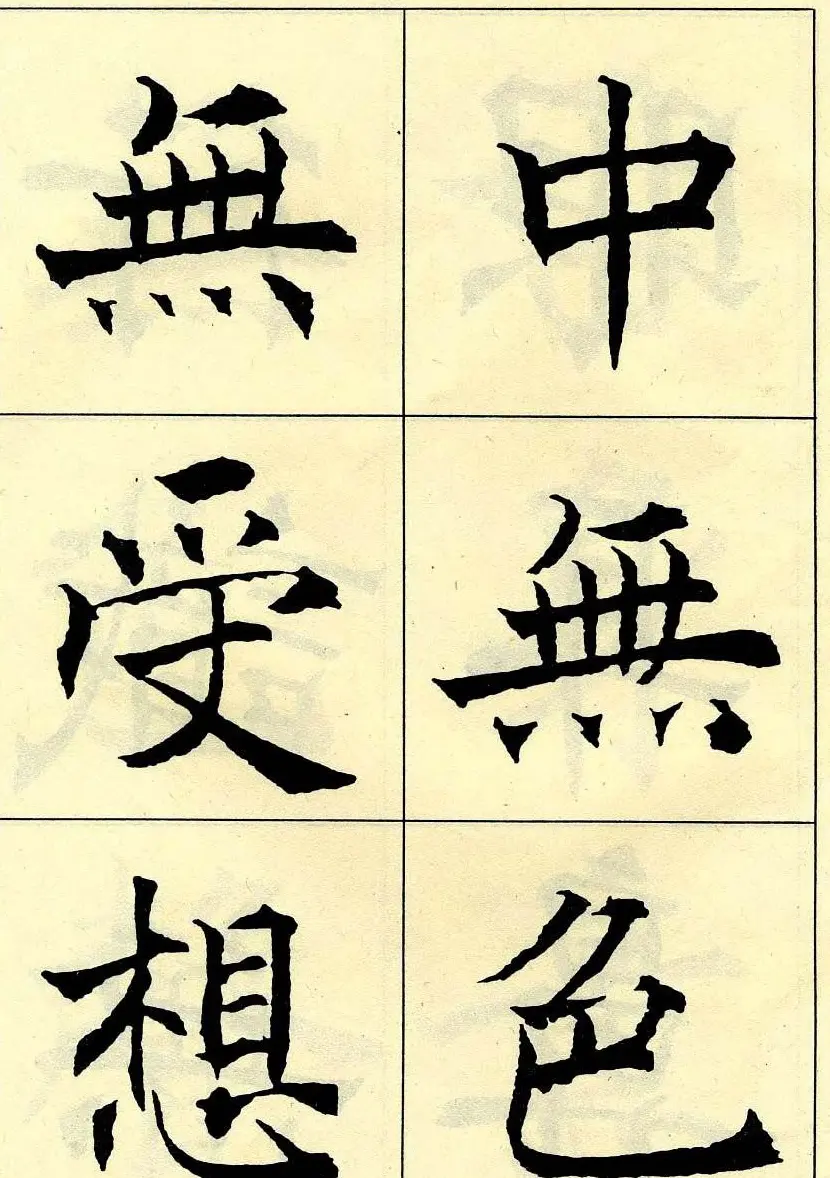 中無色
無受想